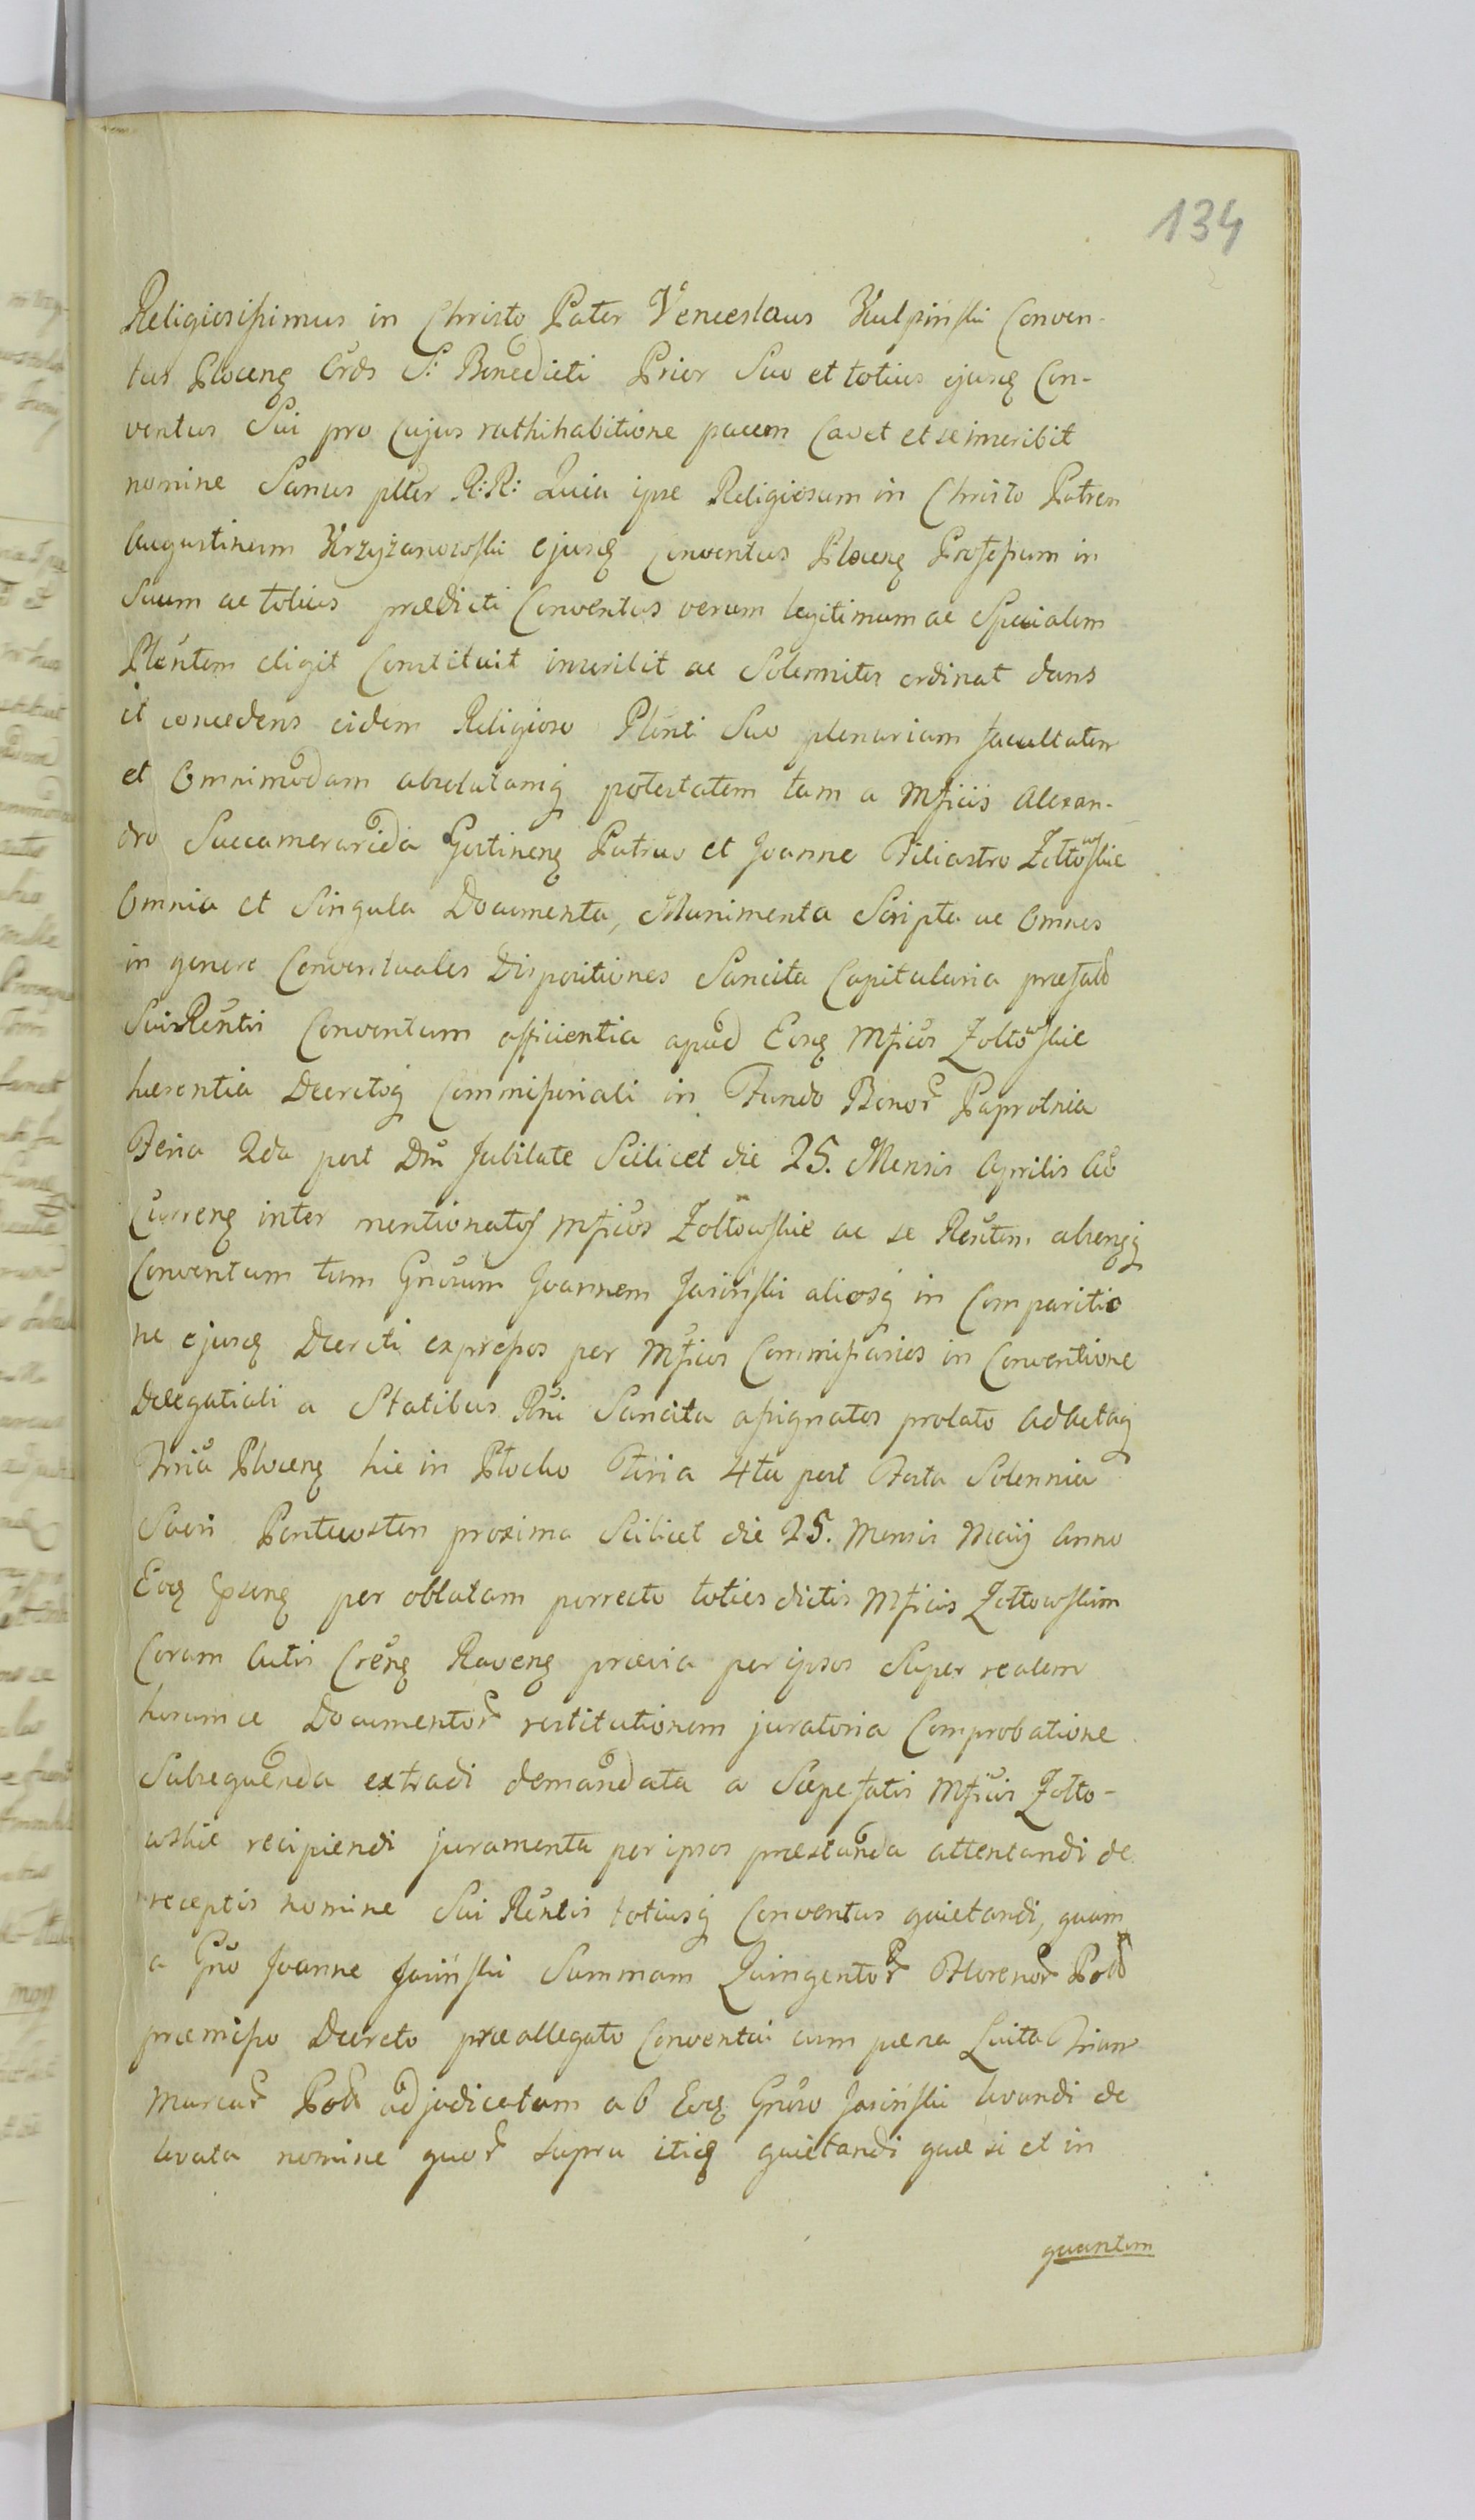 134
Religiosissimus in Christo Pater Venceslaus Kulpiński Conven-
tus Plocenę Ords S: Benedicti Prior Suo et totius ejusq Con-
ventus Sui pro Cujus rathihabitione pacem Cavet et se inscribit
nomine Sanus plter R:R: Quia ipse Religiosum in Christo Patrem
Augustinum Krzyżanowski ejusq Conventus Plocenę Professum in
Suum ac totius prædicti Conventus verum legitimum ac Specialem
Plentem eligit Constituit inscribit ac Solemniter ordinat dans
et concedens eidem Religioso Plenti Suo plenariam facultatem
et Omnimodam absolutamq potestatem tam a Mficis Alexan-
dro Succamerarida Gostinenę Patruo et Joanne Filiastro Zołtowskie
Omnia et Singula Documenta, Munimenta Scripta ac Omnes
in genere Conventuales Dispositiones Sancita Capitularia præfato
Sui Rentis Conventum afficientia apud Eosq Mficos Zołtowskie
hærentia Decretoq Commissoriali in Fundo Bonor Paprotnia
Feria 2da post Dm Jubilate Scilicet die 25. Mensis Aprilis Ao
Currenę inter mentionatos Mficos Zołtowskie ac se Rentem absensq
Conventum tum Gnosum Joannem Jasiński aliosq in Comparitio
ne ejusq Decreti expressos per Mficos Commissarios in Conventione
Delegatiali a Statibus Rni Sancita assignatos prolato Ad Actaq
Trria Plocenę hic in Plocko Feria 4ta post Festa Solennia
Sacri Pentecosten proxima Scilicet die 25. Mensis Maij Anno
Eoq Psenę per oblatam porrecto toties dictis Mficis Zołtowskim
Coram Actis Crenę Ravenę prævia per ipsos Super realem
horumce Documentor restitutionem juratoria Comprobatione
Subsequenda extradi demandata a Sæpefatis Mficis Zołto-
wskie recipiendi juramenta per ipsos præstanda attentandi de
receptis nomine Sui Rentis totiusq Conventus quietandi, quam
a Gno Joanne Jasiński Summam Quingentor Florenor Pol
præmisso Decreto præallegato Conventui cum pæna Luita Trium
Marcar Pol adjudicatam ab Eoq Gnoso Jasiński levandi de
levata nomine quor supra itiq quietandi quæ si et in
quantum